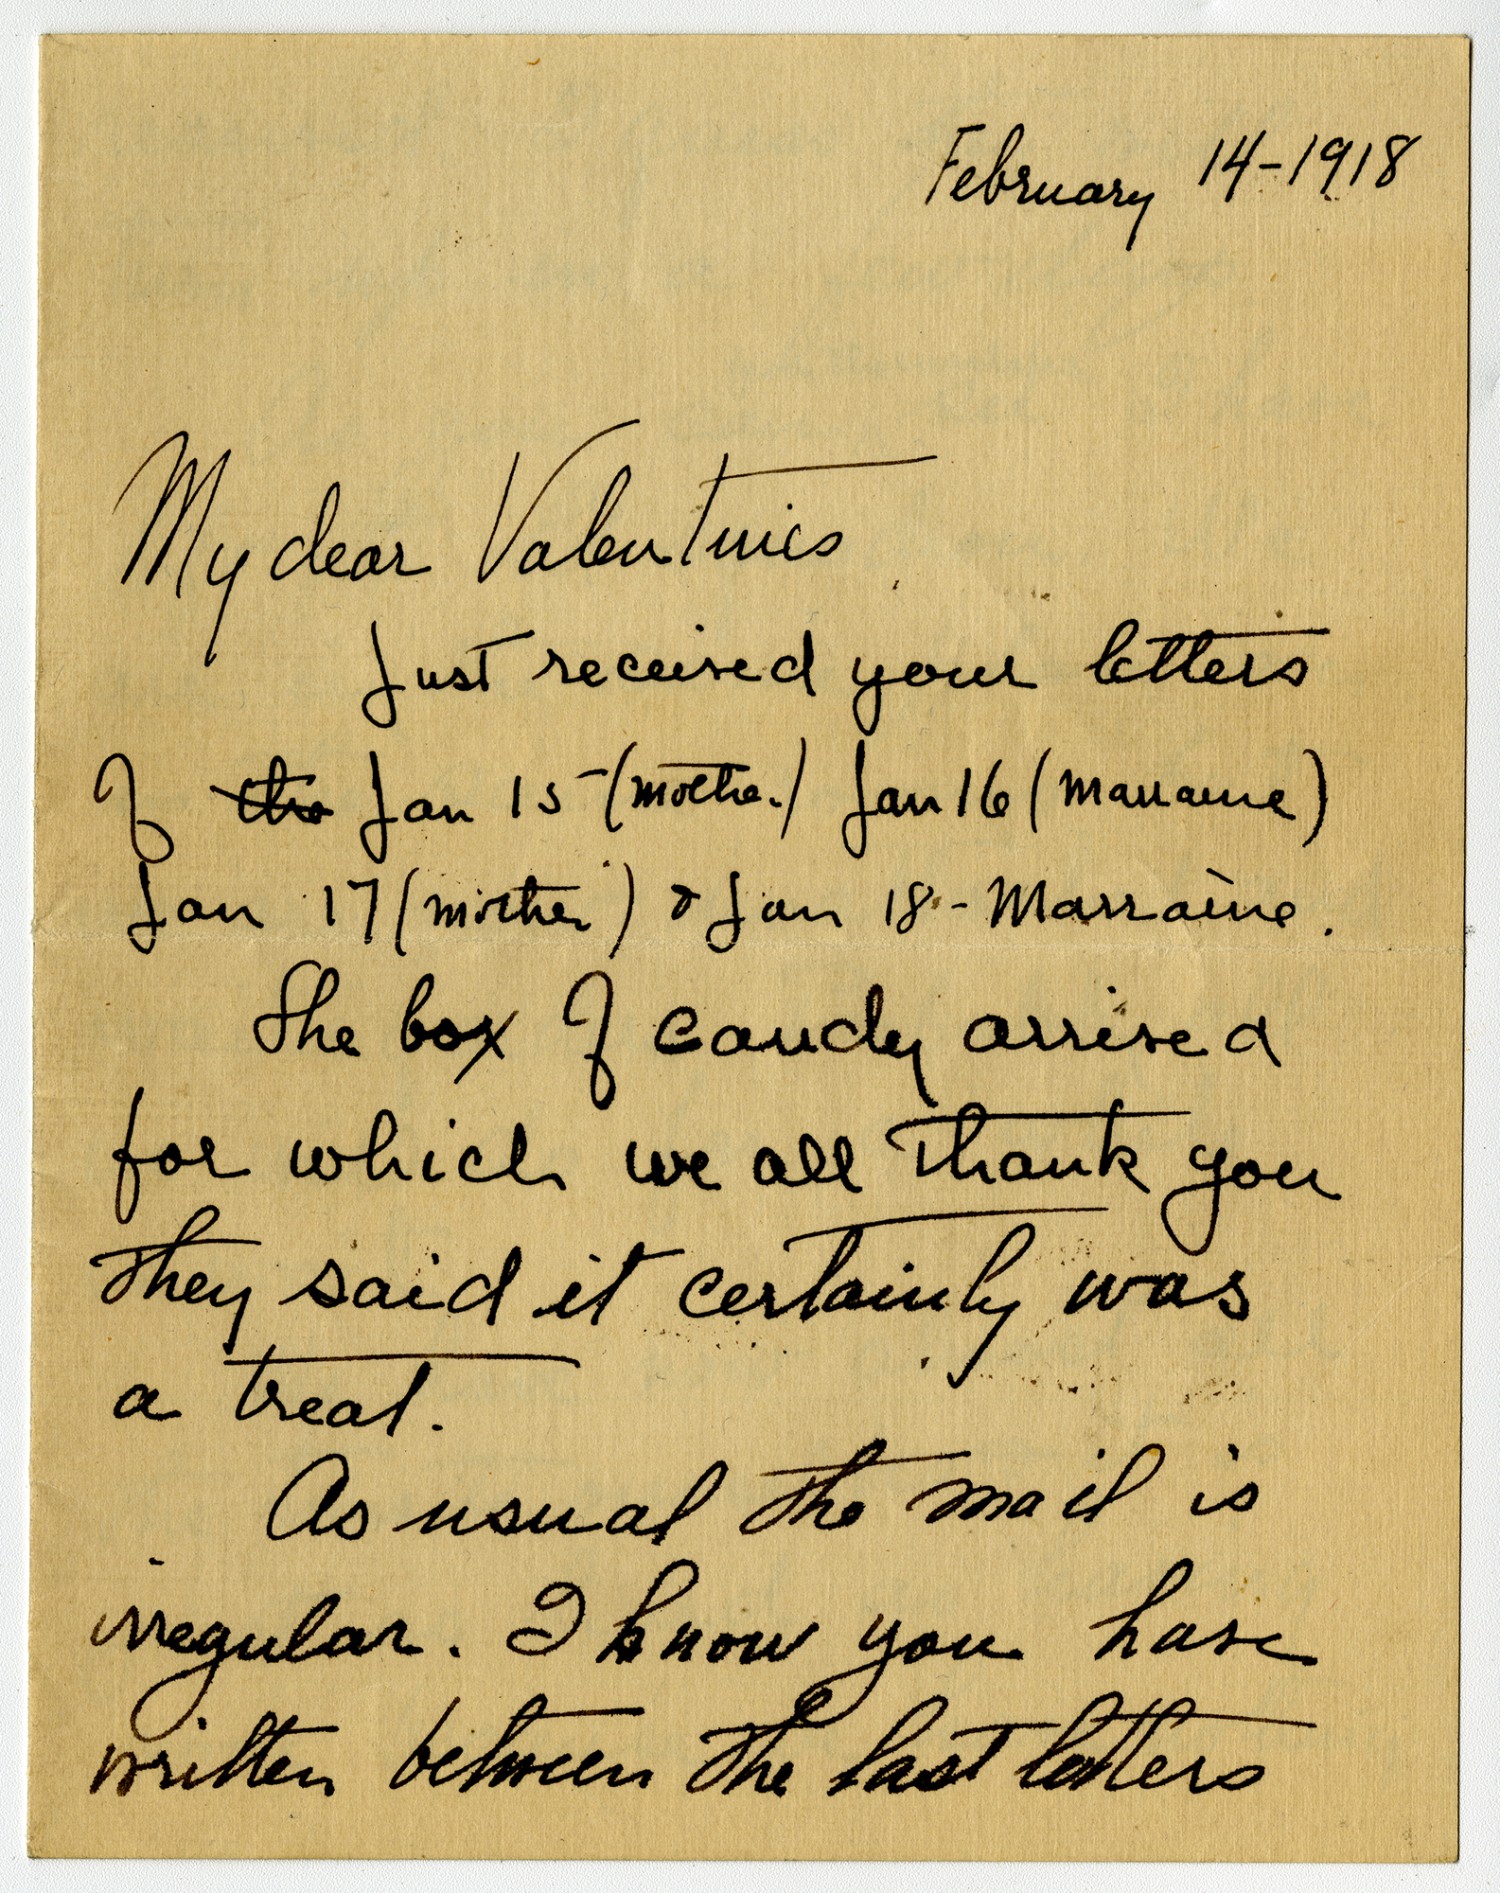 February 14-1918
My dear Valentines
Just received your letters
of the Jan 15-(mother) Jan 16 (Marraine)
Jan 17 (mother) & Jan 18 - Marraine.
The box of candy arrived
for which we all thank you
they said it certainly was
a treat.
As usual the mail is
irregular. I know you have
written between the last letters